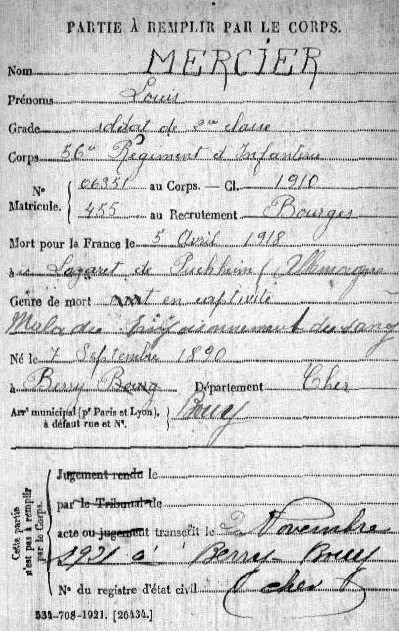 PARTIE À REMPLIR PAR LE CORPS.
Nom MERCIER
Prénoms Louis
Grade soldat de 2me classe
Corps 56e Régiment d'Infanterie
Nº Matricule. { 06351 au Corps. — Cl. 1910
455 au Recrutement Bourges
Mort pour la France le 5 Avril 1918
à Lazaret de Puchheim (Allemagne
Genre de mort mort en captivité
Maladie Empoisonnement du sang
Né le 7 Septembre 1890
à Berry Bouy Département Cher
Arrt municipal (pr Paris et Lyon), à défaut rue et Nº. { Bouy
Cette partie n'est pas à remplir par le Corps.
Jugement rendu le
par le Tribunal de
acte ou jugement transcrit le 2 Novembre
1921 à Berry Bouy
Nº du registre d'état civil (Cher)
534-708-1921. [26434.]